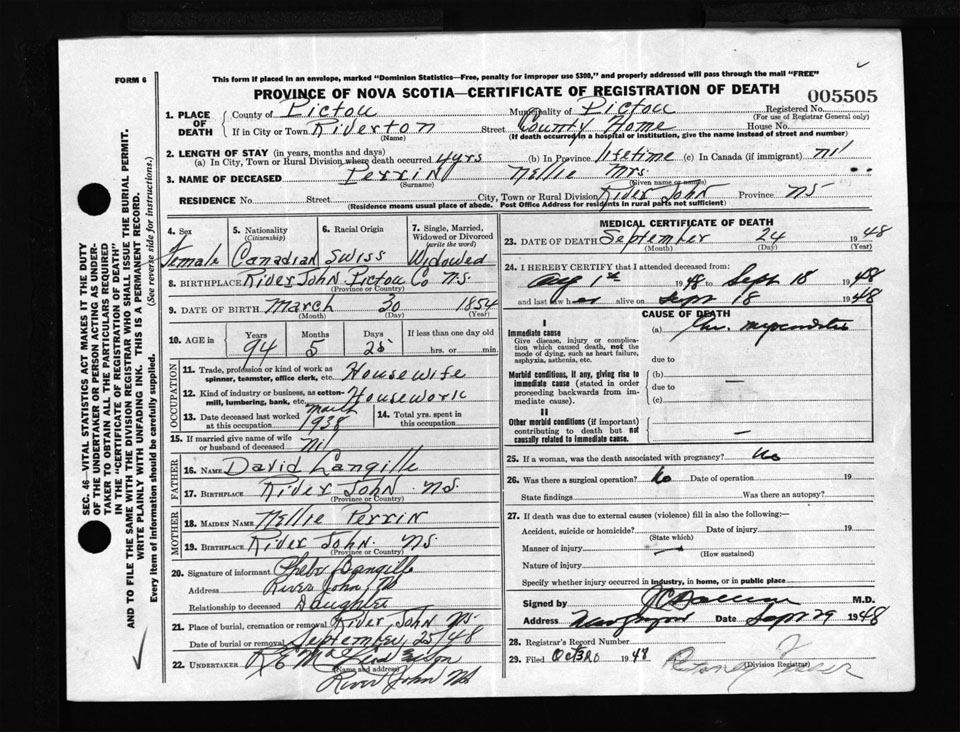 FORM 6
This form if placed in an envelope, marked "Dominion Statistics—Free, penalty for improper use $300," and properly addressed will pass through the mail "FREE"
PROVINCE OF NOVA SCOTIA—CERTIFICATE OF REGISTRATION OF DEATH
005505
SEC. 46—VITAL STATISTICS ACT MAKES IT THE DUTY
OF THE UNDERTAKER OR PERSON ACTING AS UNDER-
TAKER TO OBTAIN ALL THE PARTICULARS REQUIRED
IN THE "CERTIFICATE OF REGISTRATION OF DEATH"
AND TO FILE THE SAME WITH THE DIVISION REGISTRAR WHO SHALL ISSUE THE BURIAL PERMIT.
WRITE PLAINLY WITH UNFADING INK. THIS IS A PERMANENT RECORD.
Every item of information should be carefully supplied. (See reverse side for instructions.)
1. PLACE OF DEATH
County of Pictou Municipality of Pictou Registered No.
(For use of Registrar General only)
If in City or Town Riverton Street County Home House No.
(Name) (If death occurred in a hospital or institution, give the name instead of street and number)
2. LENGTH OF STAY (in years, months and days)
(a) In City, Town or Rural Division where death occurred 4yrs (b) In Province lifetime (c) In Canada (if immigrant) nil
3. NAME OF DECEASED Perrin Nellie Mrs.
(Surname) (Given name or names)
RESIDENCE No. Street City, Town or Rural Division River John Province NS
(Residence means usual place of abode. Post Office Address for residents in rural parts not sufficient)
4. Sex 5. Nationality (Citizenship) 6. Racial Origin 7. Single, Married, Widowed or Divorced (write the word)
Female Canadian Swiss Widowed
8. BIRTHPLACE River John Pictou Co N.S.
(Province or Country)
9. DATE OF BIRTH March 30 1854
(Month) (Day) (Year)
10. AGE in Years Months Days If less than one day old
94 5 25 hrs. or min.
OCCUPATION
11. Trade, profession or kind of work as spinner, teamster, office clerk, etc. Housewife
12. Kind of industry or business, as cotton-mill, lumbering, bank, etc. Housework
13. Date deceased last worked at this occupation 1938
14. Total yrs. spent in this occupation
15. If married give name of wife or husband of deceased nil
FATHER
16. NAME David Langille
17. BIRTHPLACE River John NS.
(Province or Country)
MOTHER
18. MAIDEN NAME Nellie Perrin
19. BIRTHPLACE River John NS.
(Province or Country)
20. Signature of informant
Address River John NS
Relationship to deceased Daughter
21. Place of burial, cremation or removal River John NS.
Date of burial or removal September 25/48
22. UNDERTAKER
(Name and address)
River John NS
MEDICAL CERTIFICATE OF DEATH
23. DATE OF DEATH September 24 1948
(Month) (Day) (Year)
24. I HEREBY CERTIFY that I attended deceased from:
Aug 1st 1948 to Sept 18 1948
and last saw her alive on Sept 18 1948
CAUSE OF DEATH
I
Immediate cause (a)
Give disease, injury or complication which caused death, not the mode of dying, such as heart failure, asphyxia, asthenia, etc.
due to
Morbid conditions, if any, giving rise to immediate cause (stated in order proceeding backwards from immediate cause).
(b) —
due to
(c)
II
Other morbid conditions (if important) contributing to death but not causally related to immediate cause. —
25. If a woman, was the death associated with pregnancy? No
26. Was there a surgical operation? No Date of operation 19
State findings Was there an autopsy?
27. If death was due to external causes (violence) fill in also the following:—
Accident, suicide or homicide? Date of injury 19
(State which)
Manner of injury —
(How sustained)
Nature of injury
Specify whether injury occurred in industry, in home, or in public place
Signed by M.D.
Address Date Sept 29 1948
28. Registrar's Record Number
29. Filed 1948
(Division Registrar)